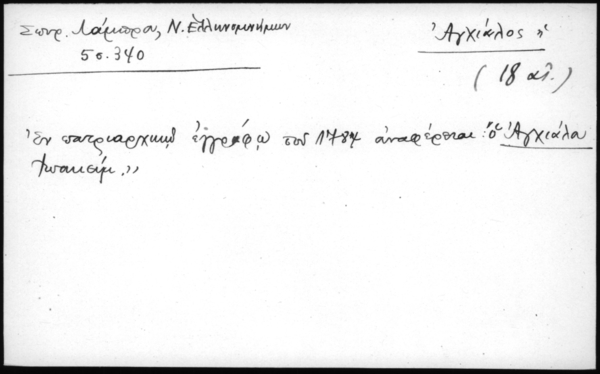 Σπυρ. Λάμπρος, Ν. Ἑλληνομνήμων
5 σ. 340
Ἀγχίαλος ἡ
(18 αἰ.)
Ἐν πατριαρχικῷ ἐγγράφῳ τοῦ 1784 ἀναφέρεται: ὁ Ἀγχιάλου
Ἰωακείμ.,,